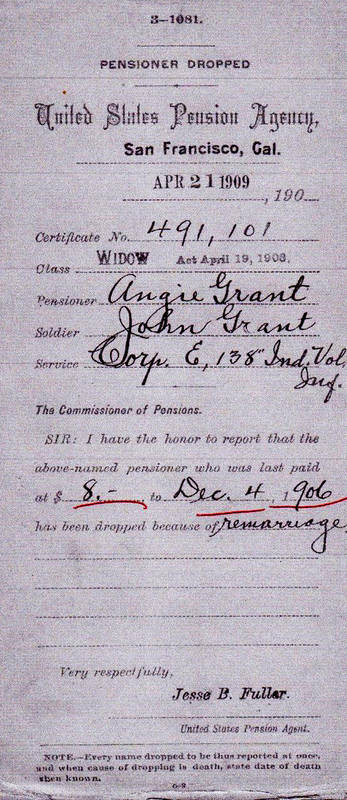 3—1081.
PENSIONER DROPPED
United States Pension Agency,
San Francisco, Cal.
APR 21 1909
, 190
Certificate No. 491,101
Class WIDOW Act April 19, 1908.
Pensioner Angie Grant
Soldier John Grant
Service Corp. E, 138" Ind. Vol.
Inf.
The Commissioner of Pensions.
SIR: I have the honor to report that the
above-named pensioner who was last paid
at $ 8.- , to Dec. 4, 1906
has been dropped because of remarriage.
Very respectfully,
Jesse B. Fuller.
United States Pension Agent.
NOTE.—Every name dropped to be thus reported at once,
and when cause of dropping is death, state date of death
when known.